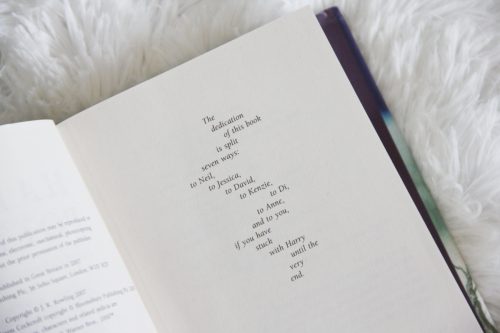 The
dedication
of this book
is split
seven ways:
to Neil,
to Jessica,
to David,
to Kenzie,
to Di,
to Anne,
and to you,
if you have
stuck
with Harry
until the
very
end.
of this publication may be reproduced or
the prior permission of the publisher
Published in Great Britain in 2007
Publishing Plc, 36 Soho Square, London, W1D 3QY
Copyright © J. K. Rowling 2007
copyright © Bloomsbury Publishing Plc
characters and related indicia are
Warner Bros.